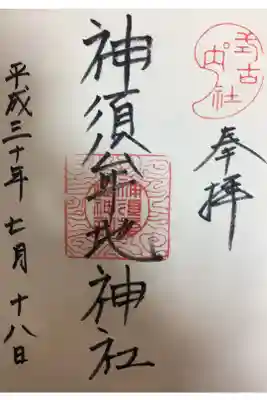 式内古社
奉拝
神須牟地神社
平成三十年七月十八日